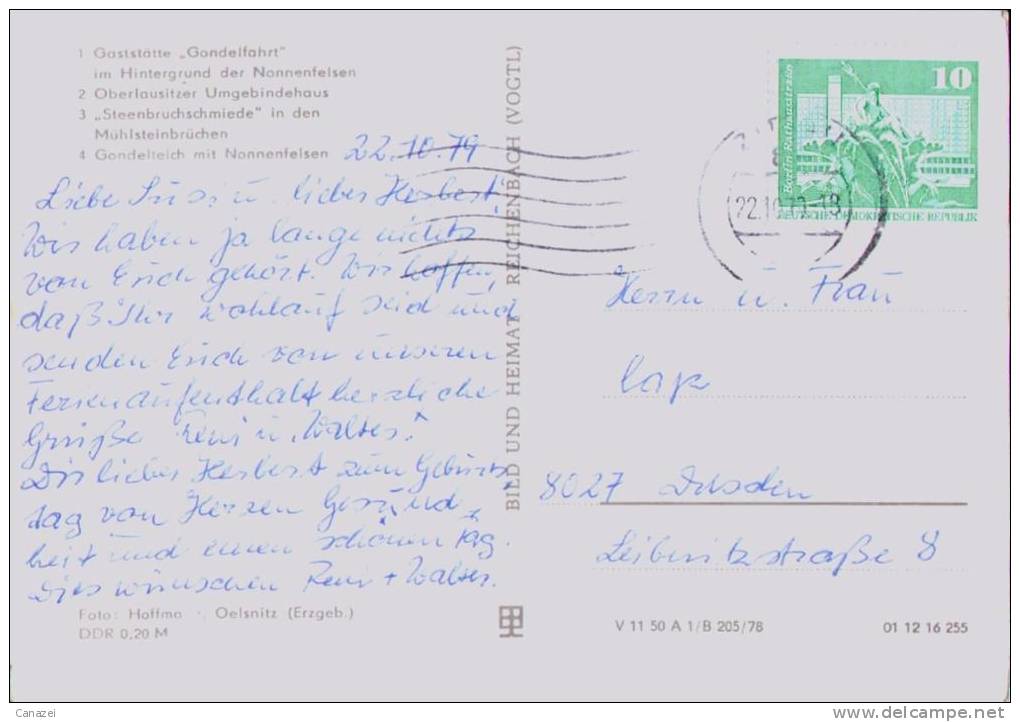 1 Gaststätte „Gondelfahrt"
im Hintergrund der Nonnenfelsen
2 Oberlausitzer Umgebindehaus
3 „Steenbruchschmiede" in den
Mühlsteinbrüchen
4 Gondelteich mit Nonnenfelsen
22.10.79
Liebe Suse u. lieber Herbert!
Wir haben ja lange nichts
von Euch gehört. Wir hoffen,
daß Ihr wohlauf seid und
senden Euch von unseren
Ferienaufenthalt herzliche
Grüße Reni u. Walter.
Dir lieber Herbert zum Geburts
tag von Herzen Gesund
heit und einen schönen Tag.
Dies wünschen Reni + Walter.
Foto: Hoffma , Oelsnitz (Erzgeb.)
DDR 0,20 M
BILD UND HEIMAT REICHENBACH (VOGTL)
10
Berlin Rathausstraße
DEUTSCHE DEMOKRATISCHE REPUBLIK
22.10.79-18
Herrn u. Frau
8027 Dresden
Leibnitzstraße 8
V 11 50 A 1/B 205/78
01 12 16 255
Canazei
www.delcampe.net